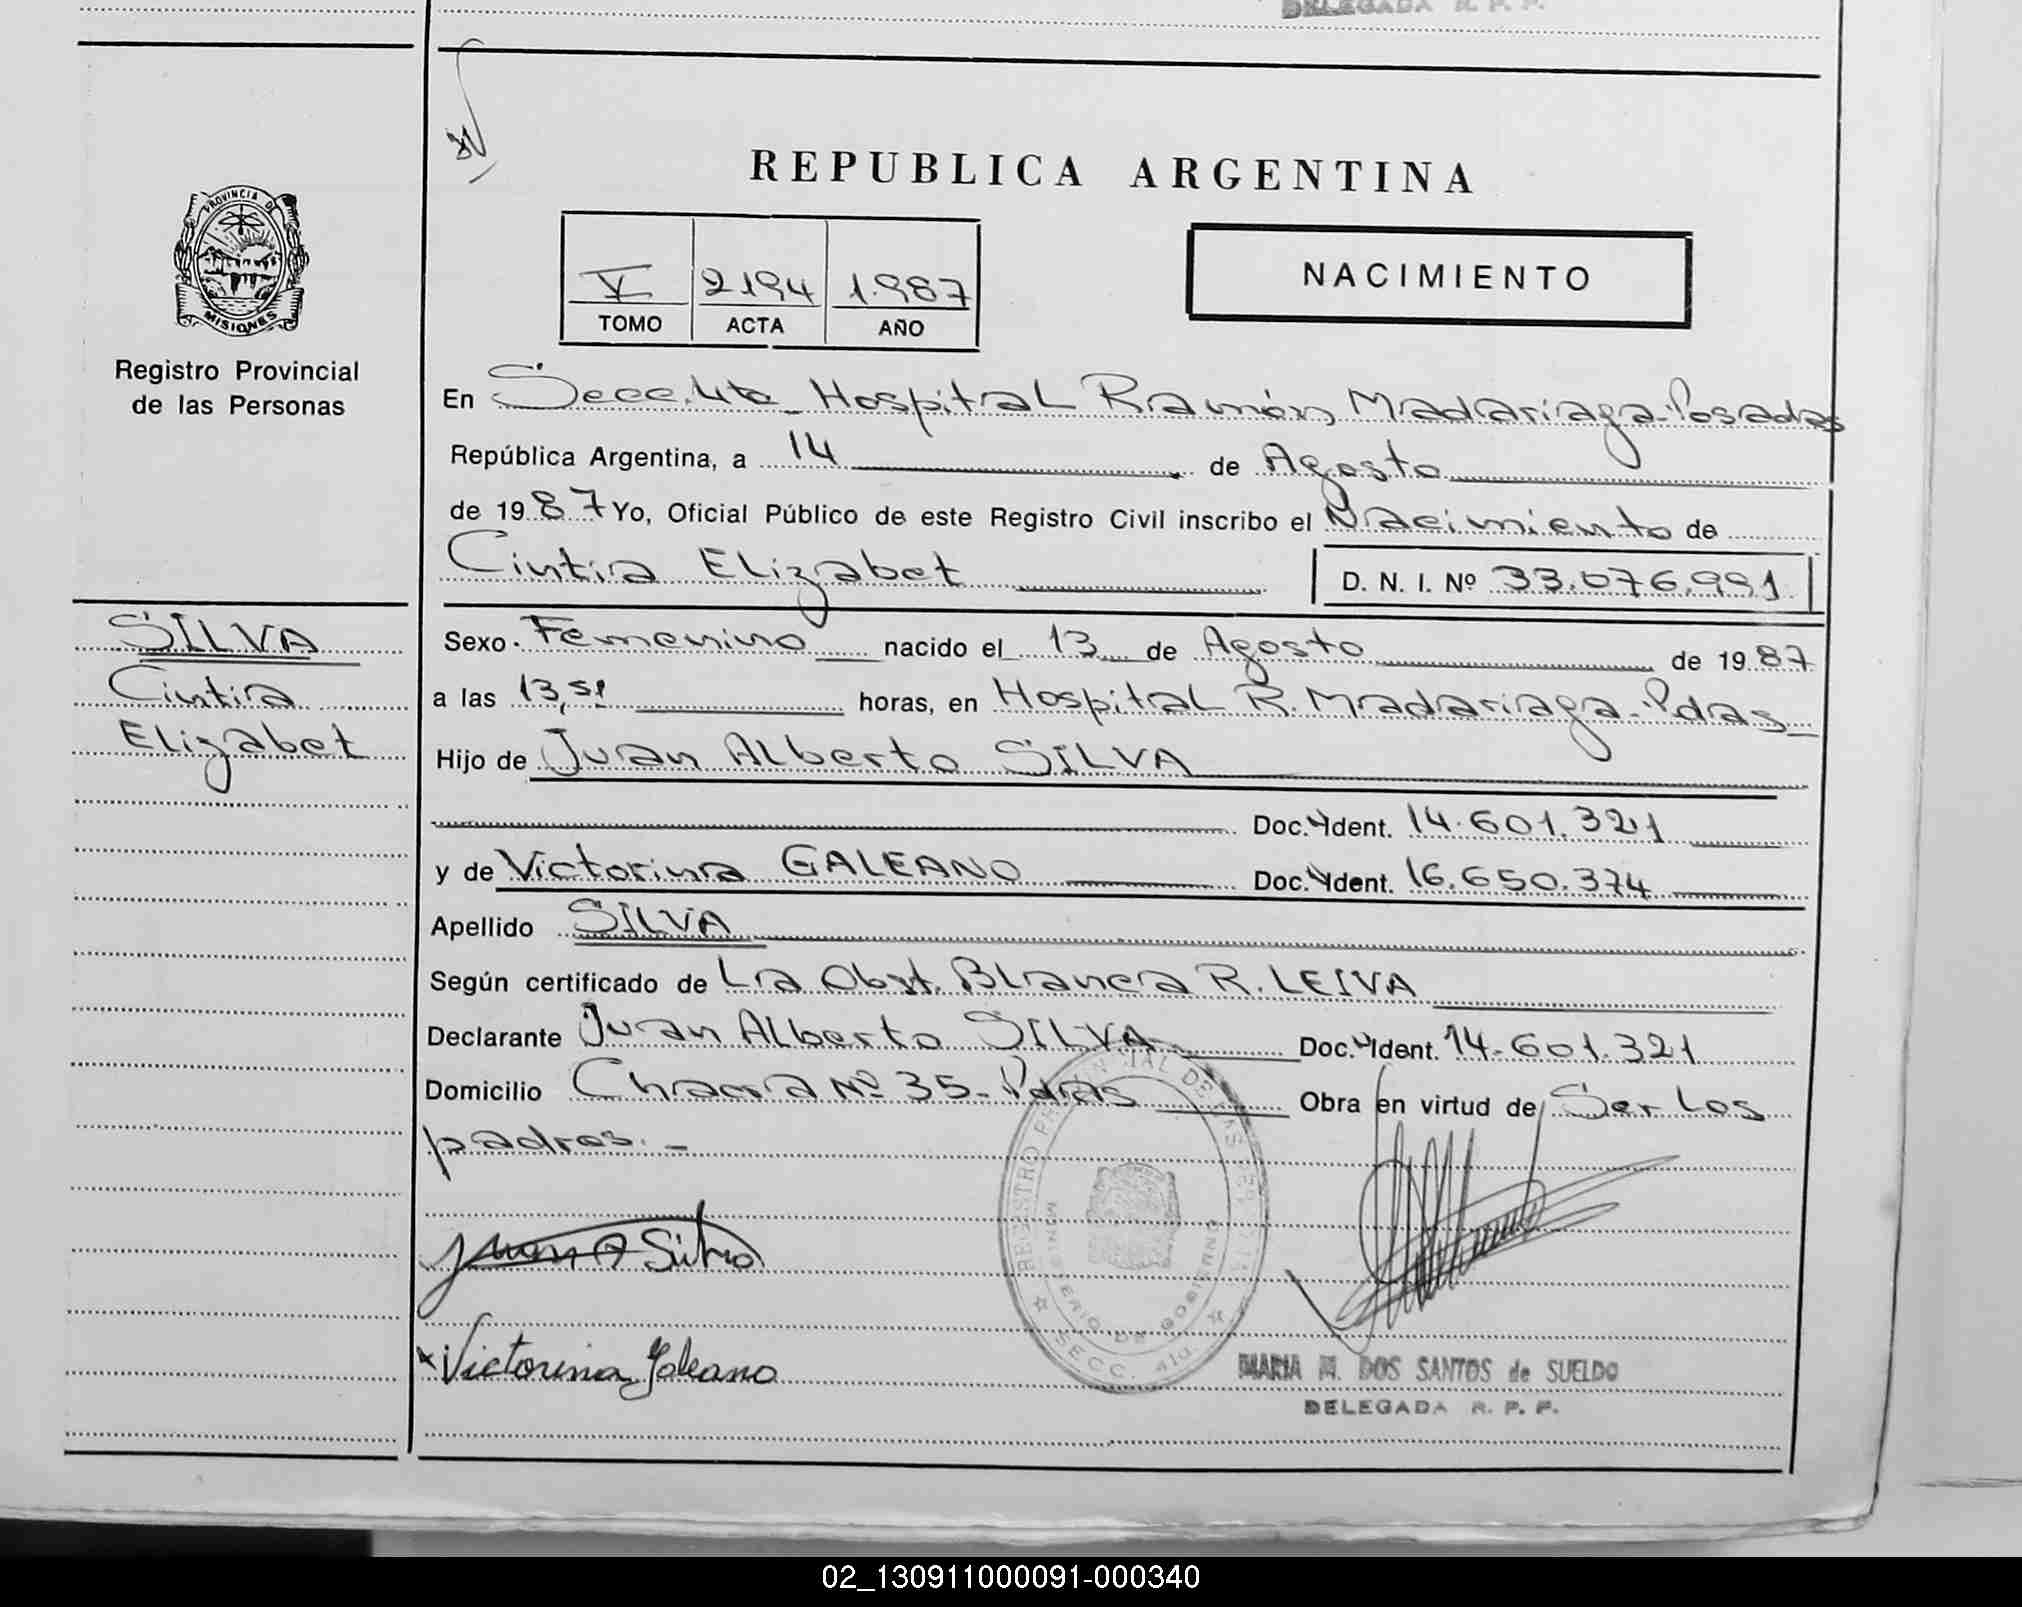 DELEGADA R. P. P.
REPUBLICA ARGENTINA
PROVINCIA DE
MISIONES
Registro Provincial
de las Personas
V 2194 1.987
TOMO ACTA AÑO
NACIMIENTO
En Secc. 4ta - Hospital Ramón Madariaga - Posadas
República Argentina, a 14 de Agosto
de 1987 Yo, Oficial Público de este Registro Civil inscribo el Nacimiento de
Cintia Elizabet D. N. I. Nº 33.076.991
SILVA
Cintia
Elizabet
Sexo Femenino nacido el 13 de Agosto de 1987
a las 13,51 horas, en Hospital R. Madariaga - Pdas
Hijo de Juan Alberto SILVA
Doc. Ident. 14.601.321
y de Victorina GALEANO Doc. Ident. 16.650.374
Apellido SILVA
Según certificado de La Obst. Blanca R. LEIVA
Declarante Juan Alberto SILVA Doc. Ident. 14.601.321
Domicilio Chacra Nº 35 - Pdas Obra en virtud de Ser los
padres. -
Juan A Silva
Victorina Galeano
REGISTRO PROVINCIAL DE LAS PERSONAS
MINISTERIO DE GOBIERNO
SECC. 4ta.
MARIA M. DOS SANTOS de SUELDO
DELEGADA R. P. P.
02_130911000091-000340